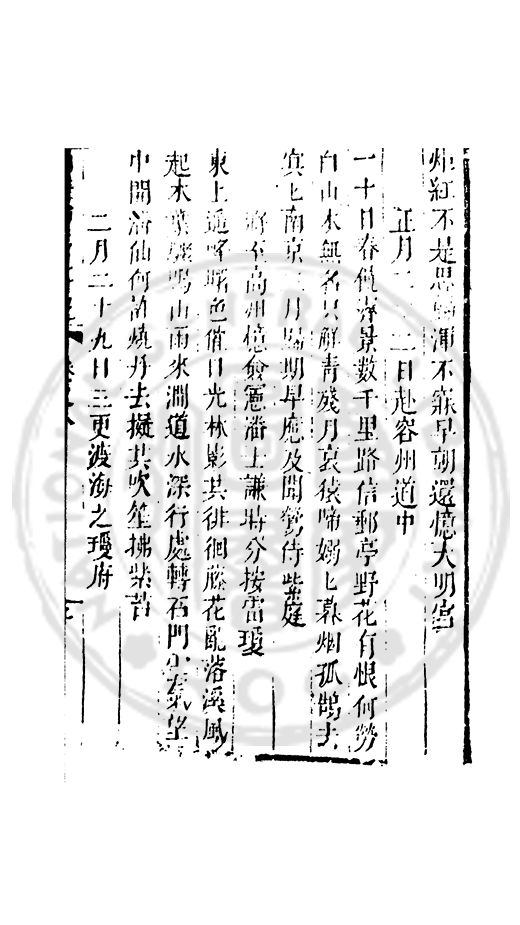 炬紅不是思不寐早朝還憶大明宮
正月二二日赴容州道中
一十日春景數千里路信郵亭野花有恨何勞
白山水無名只解青殘月哀猿啼嫋匕暮烟孤鵠去
冥匕南京二月歸期早應及聞鶯侍紫庭
將至高州憶僉憲潘士謙時分按雷瓊
東上遥嶂曙色催日光林影共徘徊藤花亂落溪風
起木葉鳴山雨來澗道水深行處轉石門
中聞潘仙何燒丹去擬共吹笙拂紫苔
二月二十九日三更渡海之瓊府